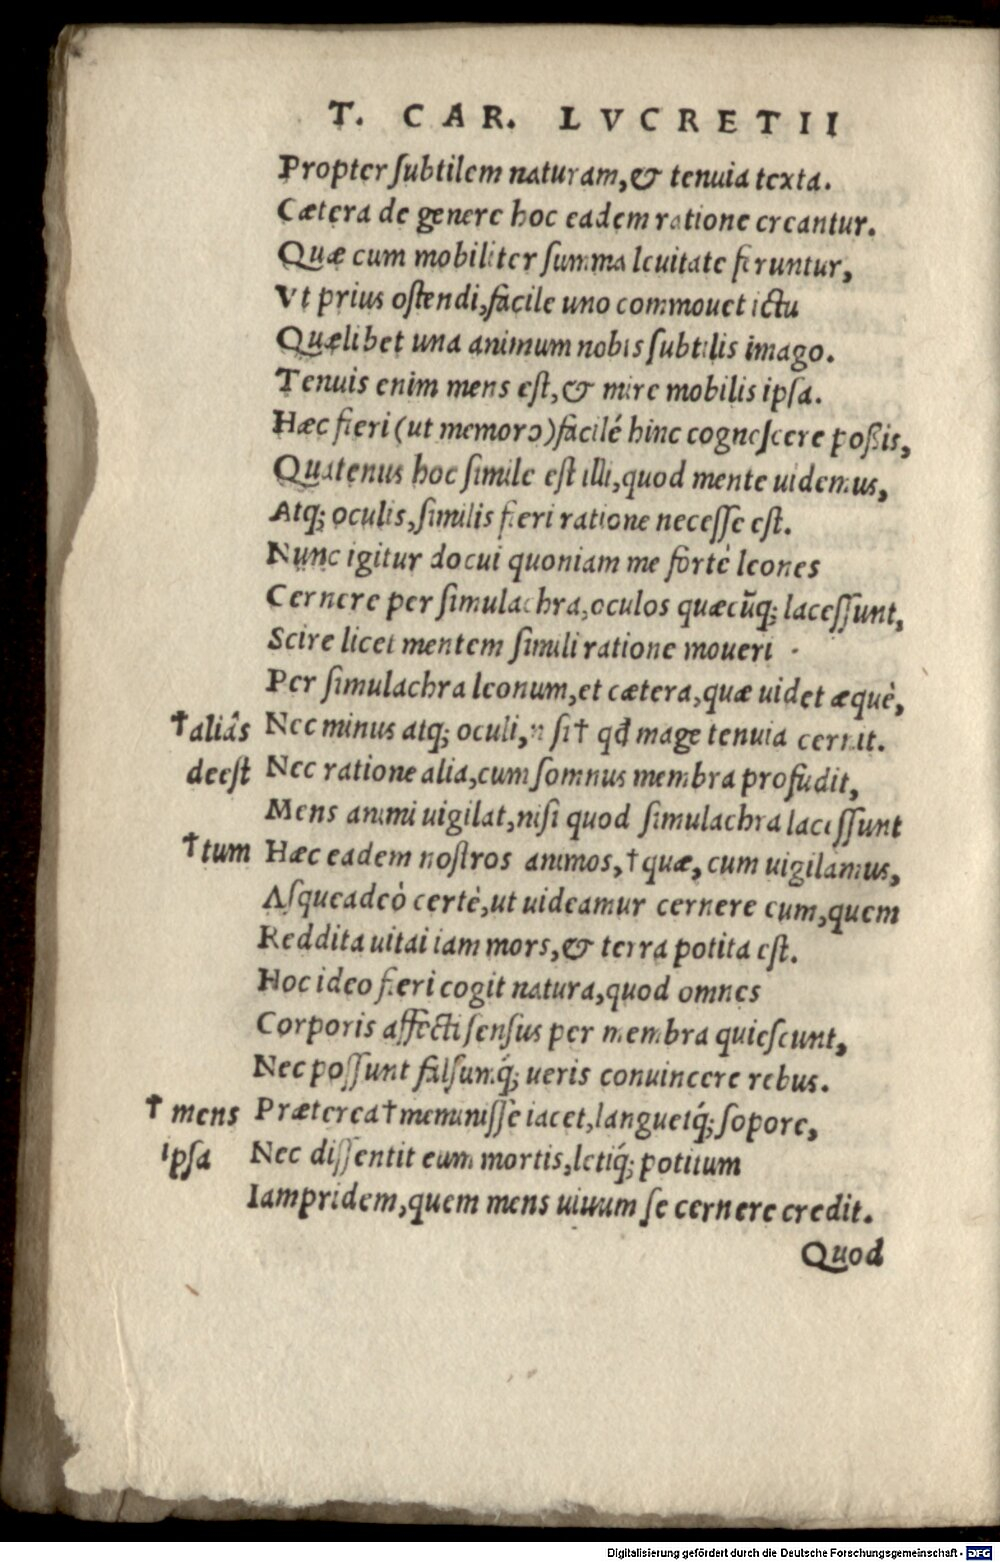 T. CAR. LVCRETII
Propter ſubtilem naturam, & tenuia texta.
Cætera de genere hoc eadem ratione creantur.
Quæ cum mobiliter ſumma leuitate feruntur,
Vt prius oſtendi, facile uno commouet ictu
Quælibet una animum nobis ſubtilis imago.
Tenuis enim mens eſt, & mire mobilis ipſa.
Hæc fieri (ut memoro) facilé hinc cognoſcere poßis,
Quatenus hoc ſimile eſt illi, quod mente uidemus,
Atq; oculis, ſimilis fieri ratione neceſſe eſt.
Nunc igitur docui quoniam me fortè leones
Cernere per ſimulachra, oculos quæcũq; laceſſunt,
Scire licet mentem ſimili ratione moueri
Per ſimulachra leonum, et cætera, quæ uidet æquè,
†aliâs Nec minus atq; oculi, ſi† qd mage tenuia cernit.
deeſt Nec ratione alia, cum ſomnus membra profudit,
Mens animi uigilat, niſi quod ſimulachra laceſſunt
†tum Hæc eadem noſtros animos, † quæ, cum uigilamus,
Aſqueadeò certè, ut uideamur cernere eum, quem
Reddita uitai iam mors, & terra potita eſt.
Hoc ideo fieri cogit natura, quod omnes
Corporis affecti ſenſus per membra quieſcunt,
Nec poſſunt falſumq́; ueris conuincere rebus.
† mens Præterea † meminiſſe iacet, languetq́; ſopore,
ipſa Nec diſſentit eum mortis, letiq́; potitum
Iampridem, quem mens uiuum ſe cernere credit.
Quod
Digitalisierung gefördert durch die Deutsche Forschungsgemeinschaft - DFG